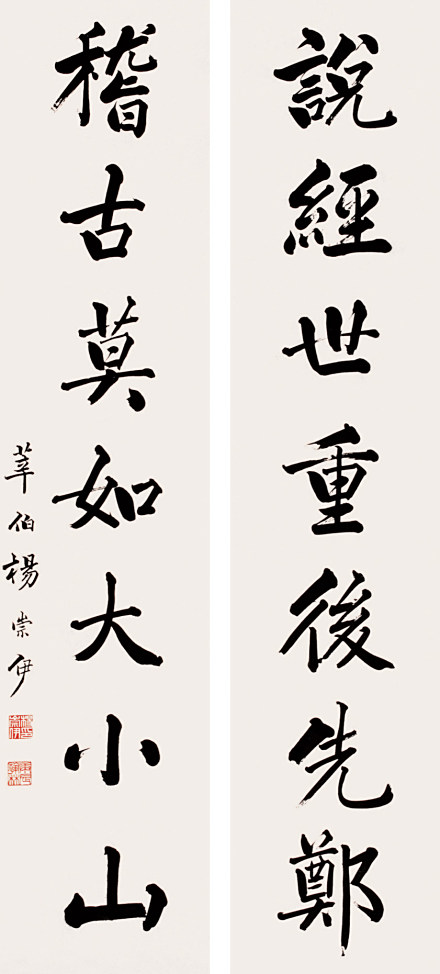 說經世重後先鄭
稽古莫如大小山
莘伯楊崇伊